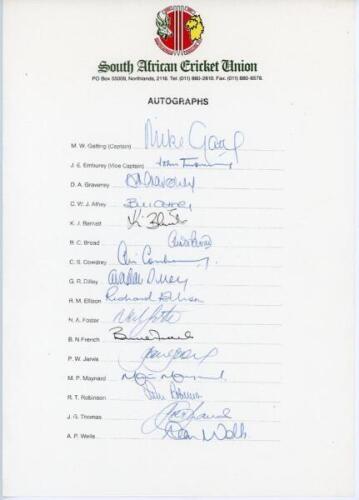 South African Cricket Union
PO Box 55009, Northlands, 2116. Tel. (011) 880-2810. Fax. (011) 880-6578.
AUTOGRAPHS
M. W. Gatting (Captain) Mike Gatting
J. E. Emburey (Vice Captain) John Emburey
D. A. Graveney DA Graveney
C. W. J. Athey Bill Athey
K. J. Barnett K. Barnett
B. C. Broad Chris Broad
C. S. Cowdrey Chris Cowdrey
G. R. Dilley Graham Dilley
R. M. Ellison Richard Ellison
N. A. Foster Neil Foster
B. N. French Bruce French
P. W. Jarvis
M. P. Maynard
R. T. Robinson Tim Robinson
J. G. Thomas
A. P. Wells Alan Wells